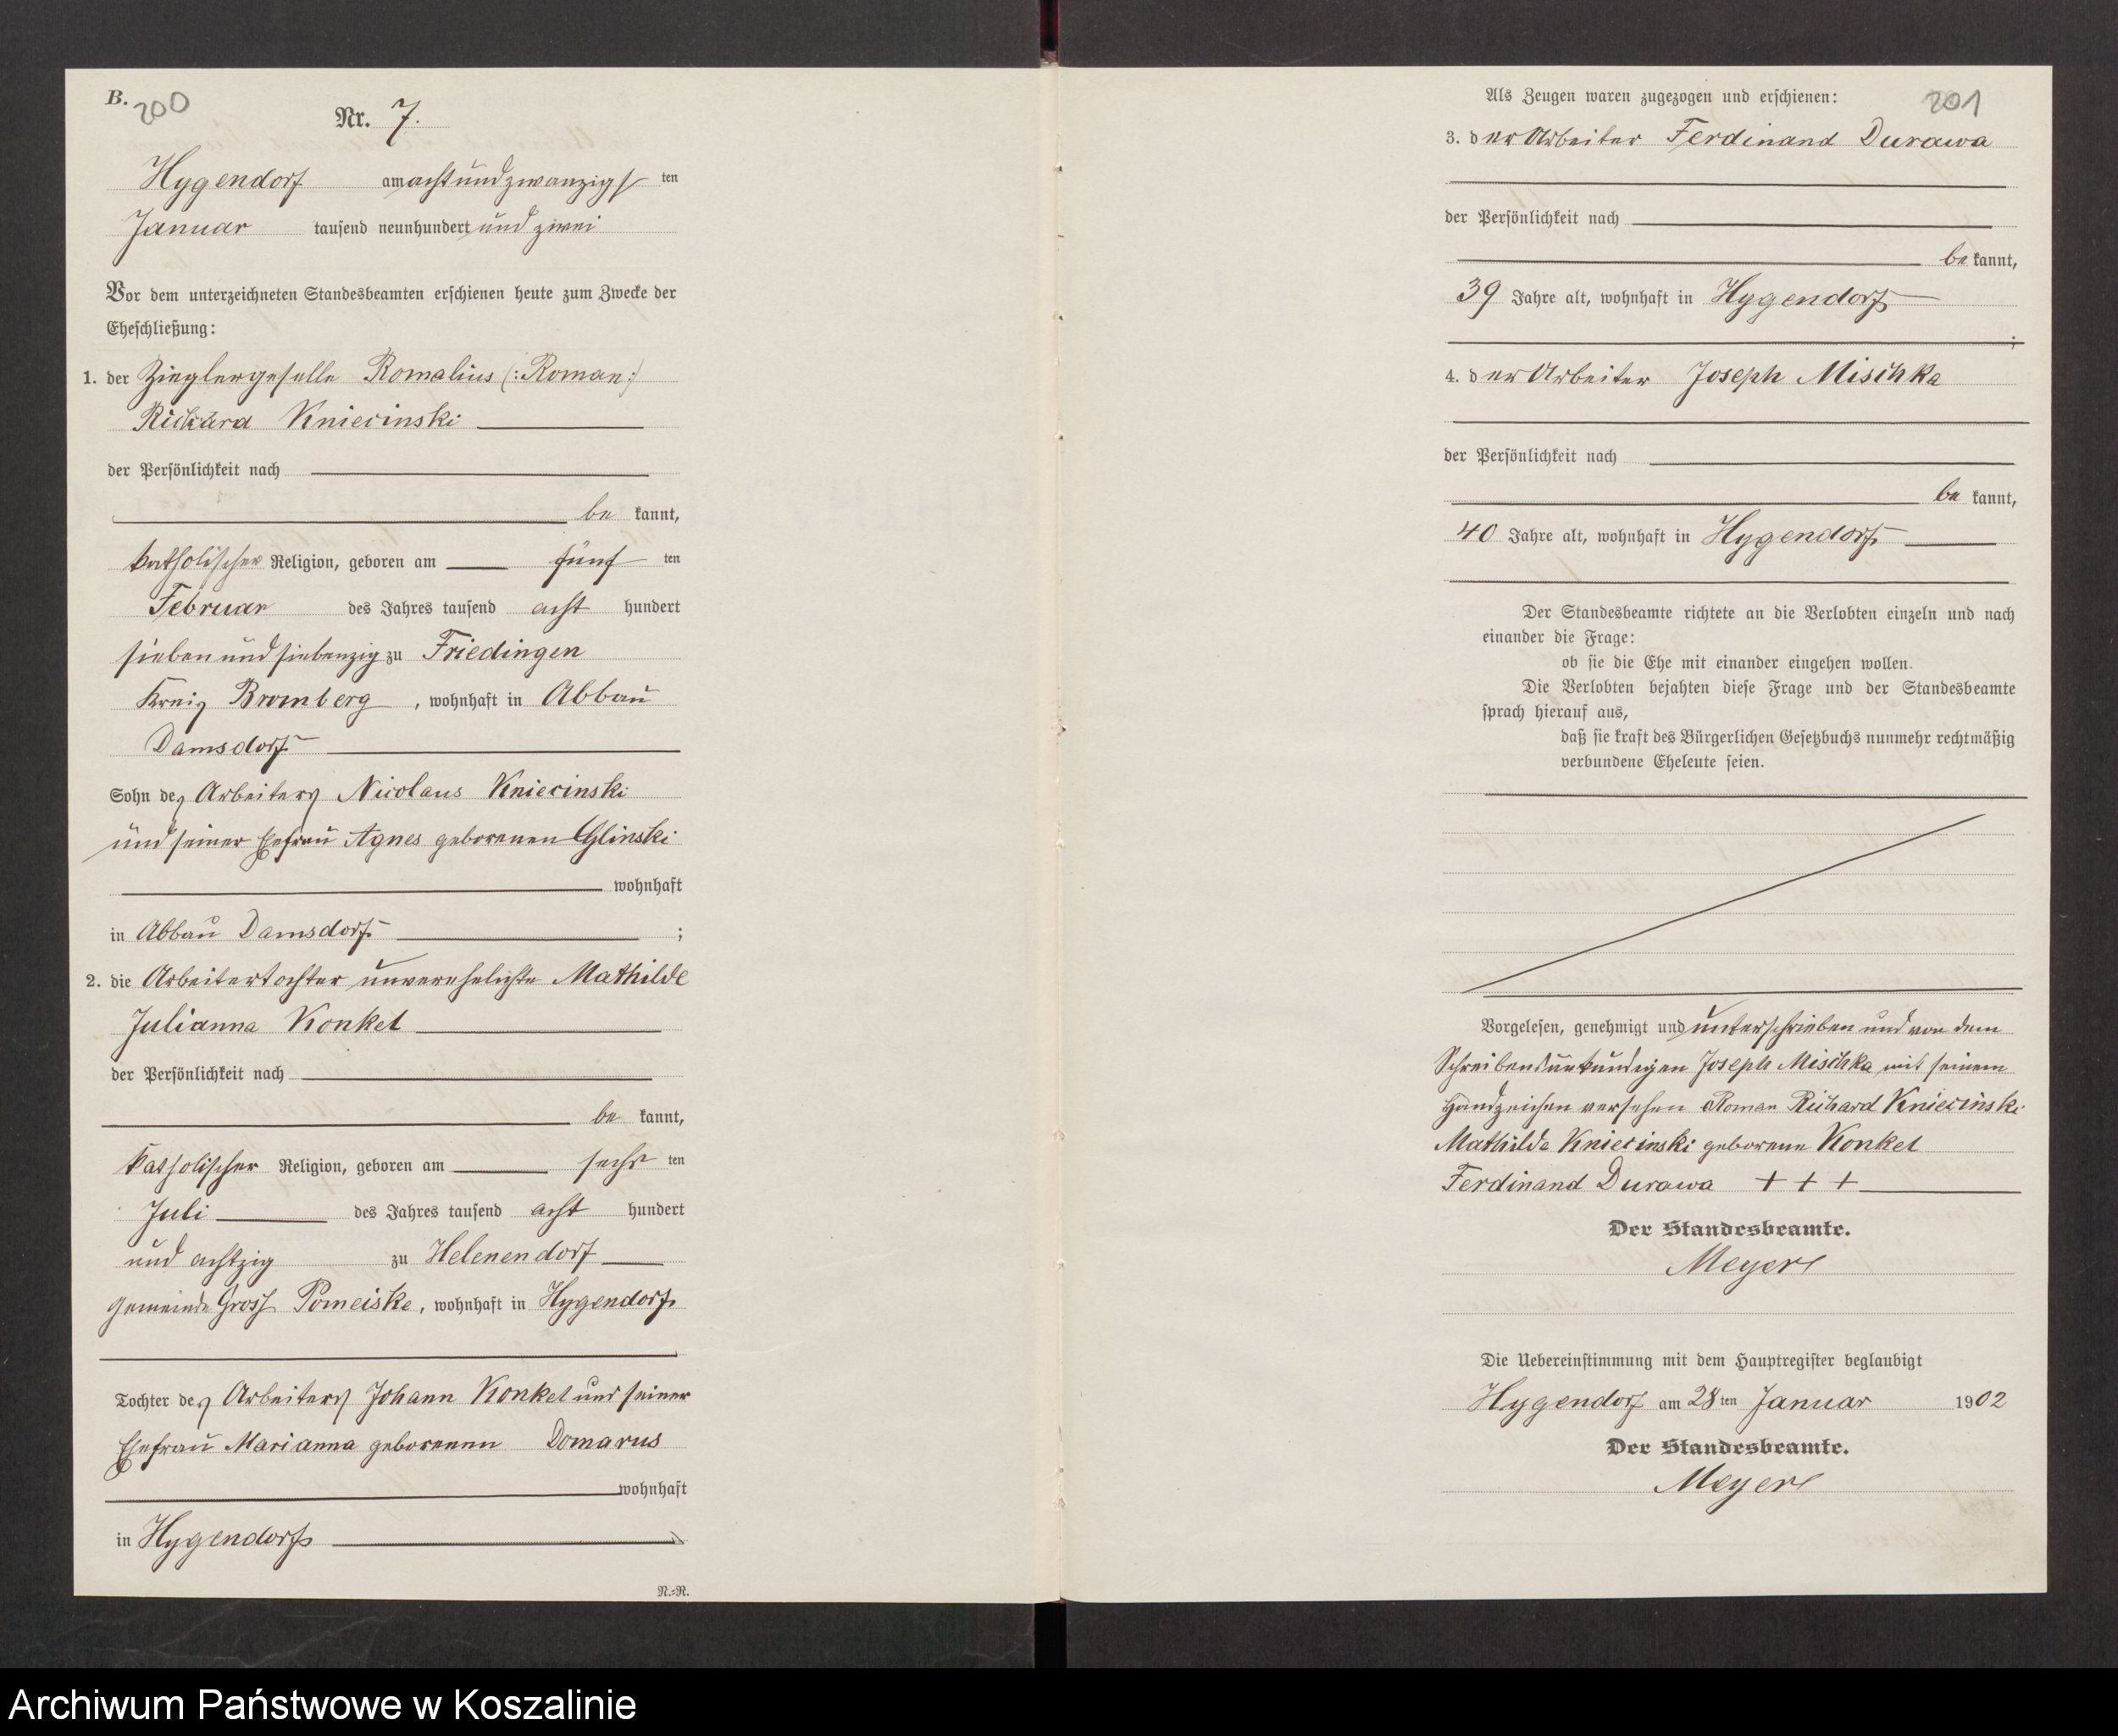 B. 200
Nr. 7.
Hygendorf am achtundzwanzigsten
Januar tausend neunhundert und zwei
Vor dem unterzeichneten Standesbeamten erschienen heute zum Zwecke der
Eheschließung:
1. der Zieglergeselle Romalius (:Roman:)
Richard Kniecinski
der Persönlichkeit nach
be kannt,
katholischer Religion, geboren am fünf ten
Februar des Jahres tausend acht hundert
siebenundsiebenzig zu Friedingen
Kreis Bromberg, wohnhaft in Abbau
Damsdorf
Sohn des Arbeiters Nicolaus Kniecinski
und seiner Ehefrau Agnes geborenen Glinski
wohnhaft
in Abbau Damsdorf ;
2. die Arbeitertochter unverehelichte Mathilde
Julianna Konkel
der Persönlichkeit nach
be kannt,
katholischer Religion, geboren am sechs ten
Juli des Jahres tausend acht hundert
und achtzig zu Helenendorf
Gemeinde Gross Pomeiske, wohnhaft in Hygendorf
Tochter des Arbeiters Johann Konkel und seiner
Ehefrau Marianna geborenen Domarus
wohnhaft
in Hygendorf
N.=R.
Als Zeugen waren zugezogen und erschienen: 201
3. der Arbeiter Ferdinand Durawa
der Persönlichkeit nach
be kannt,
39 Jahre alt, wohnhaft in Hygendorf
;
4. der Arbeiter Joseph Mischka
der Persönlichkeit nach
be kannt,
40 Jahre alt, wohnhaft in Hygendorf
Der Standesbeamte richtete an die Verlobten einzeln und nach
einander die Frage:
ob sie die Ehe mit einander eingehen wollen.
Die Verlobten bejahten diese Frage und der Standesbeamte
sprach hierauf aus,
daß sie kraft des Bürgerlichen Gesetzbuchs nunmehr rechtmäßig
verbundene Eheleute seien.
Vorgelesen, genehmigt und unterschrieben und von dem
Schreibensunkundigen Joseph Mischka mit seinem
Handzeichen versehen Roman Richard Kniecinski
Mathilde Kniecinski geborene Konkel
Ferdinand Durawa + + +
Der Standesbeamte.
Meyer
Die Uebereinstimmung mit dem Hauptregister beglaubigt
Hygendorf am 28ten Januar 1902
Der Standesbeamte.
Meyer
Archiwum Państwowe w Koszalinie